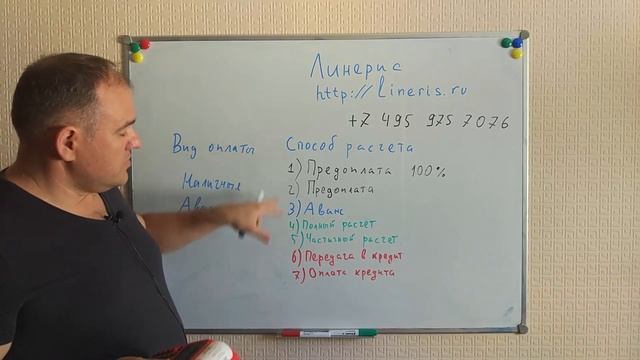 Линерис
http://lineris.ru
+7 495 975 7076
Вид оплаты
Наличные
Способ расчета
1) Предоплата 100%
2) Предоплата
3) Аванс
4) Полный расчет
5) Частичный расчет
6) Передача в кредит
7) Оплата кредита